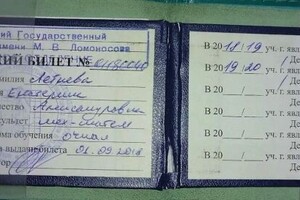 ий Государственный
имени М. В. Ломоносова
КИЙ БИЛЕТ №
амилия Летяева
Екатерина
чество Александровна
культет мех-матем
ма обучения очная
выдачи билета 01.09.2018
В 20 18/19 уч. г. явл
В 20 19/20 уч. г. явл
Де
В 20 / уч. г. явл
Де
В 20 / уч. г. явл
Де
В 20 / уч. г. явл
Де
В 20 / уч. г. явл